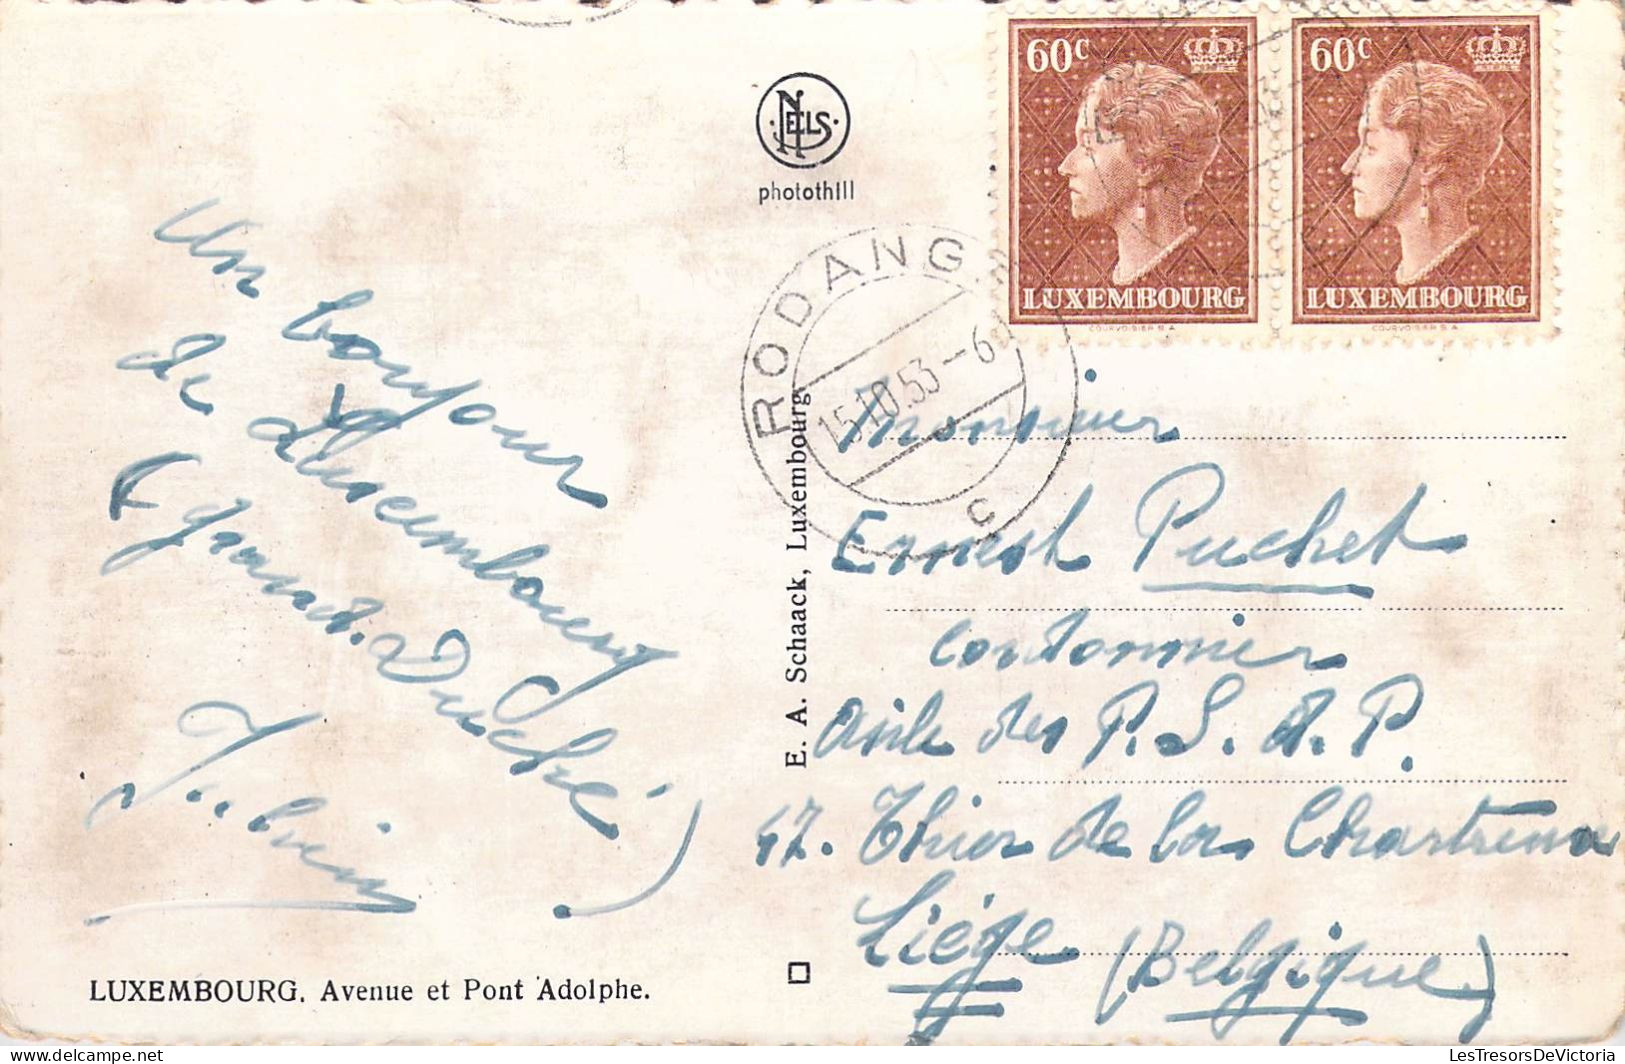 60c
60c
LUXEMBOURG
LUXEMBOURG
COURVOISIER S.A.
COURVOISIER S.A.
NELS
photothill
RODANGE
15.10.53-6
c
Un bonjour
de Luxembourg
(grand. Duché)
E. A. Schaack, Luxembourg.
Monsieur
Ernest Puchet
Cantonnier
Asile des P. S. d. P.
47. Thier de la Chartreuse
Liége (Belgique)
LUXEMBOURG. Avenue et Pont Adolphe.
www.delcampe.net
LesTresorsDeVictoria